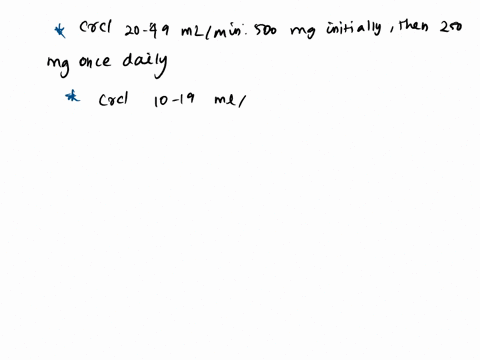 * Crcl 20-49 mL/min: 500 mg initially, then 250
mg once daily
* Crcl 10-19 ml/